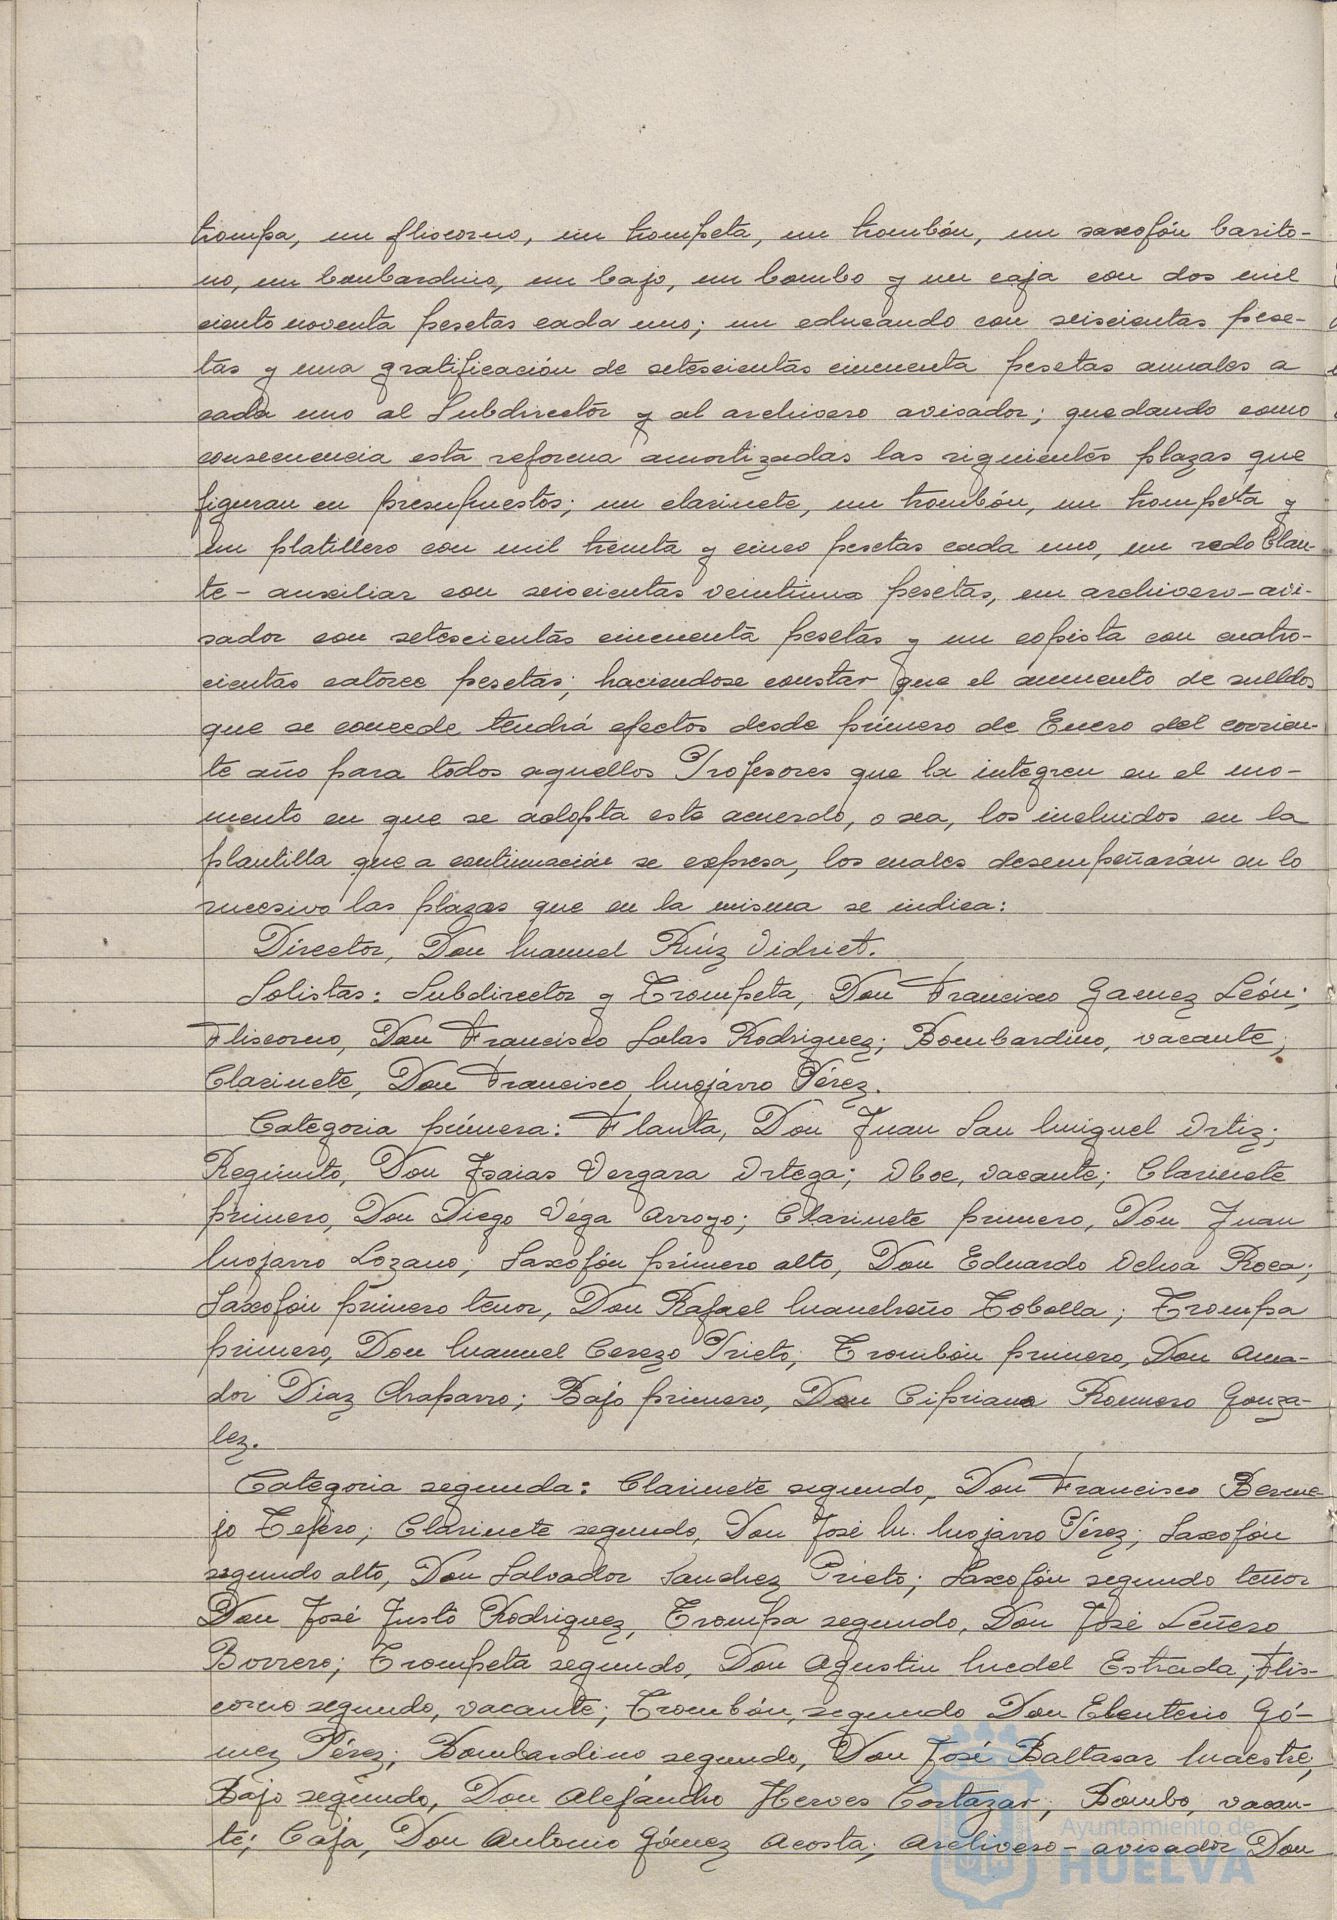 trompa, un fliscorno, un trompeta, un trombón, un saxofón baríto-
no, un bombardino, un bajo, un bombo y un caja con dos mil
ciento noventa pesetas cada uno; un educando con seiscientas pese-
tas y una gratificación de setescientas cincuenta pesetas anuales a
cada uno al Subdirector y al archivero avisador; quedando como
consecuencia esta reforma amortizadas las siguientes plazas que
figuran en presupuestos; un clarinete, un trombón, un trompeta y
un platillero con mil treinta y cinco pesetas cada uno, un redoblan-
te-auxiliar con seiscientas veintiuna pesetas, un archivero-avi-
sador con setescientas cincuenta pesetas y un copista con cuatro-
cientas catorce pesetas; haciendose constar que el aumento de sueldos
que se concede tendrá efectos desde primero de Enero del corrien-
te año para todos aquellos Profesores que la integren en el mo-
mento en que se adopta este acuerdo, o sea, los incluidos en la
plantilla que a continuación se expresa, los cuales desempeñarán en lo
sucesivo las plazas que en la misma se indica:
Director, Don Manuel Ruíz Vidriet.
Solistas: Subdirector y Trompeta, Don Francisco Gamez León;
Fliscorno, Don Francisco Salas Rodriguez; Bombardino, vacante;
Clarinete, Don Francisco Mojarro Pérez.
Categoria primera: Flauta, Don Juan San Miguel Ortiz;
Requinto, Don Isaias Vergara Ortega; Oboe, vacante; Clarinete
primero, Don Diego Véga Arroyo; Clarinete primero, Don Juan
Mojarro Lozano; Saxofón primero alto, Don Eduardo Ochoa Roca;
Saxofón primero tenor, Don Rafael Mancheño Tobella; Trompa
primero, Don Manuel Cerezo Prieto; Trombón primero, Don Ama-
dor Díaz Chaparro; Bajo primero, Don Cipriano Romero Gonza-
lez.
Categoria segunda: Clarinete segundo, Don Francisco Berme-
jo Tejero; Clarinete segundo, Don José M. Mojarro Pérez; Saxofón
segundo alto, Don Salvador Sanchez Prieto; Saxofón segundo tenor
Don José Justo Rodriguez, Trompa segundo, Don José Leñero
Borrero; Trompeta segundo, Don Agustin Medel Estrada; Flis-
corno segundo, vacante; Trombón, segundo Don Eleuterio Gó-
mez Pérez; Bombardino segundo, Don José Baltasar Maestre;
Bajo segundo, Don Alejandro Herves Cortazar; Bombo, vacan-
te; Caja, Don Antonio Gómez Acosta; Archivero-avisador Don
Ayuntamiento de
HUELVA